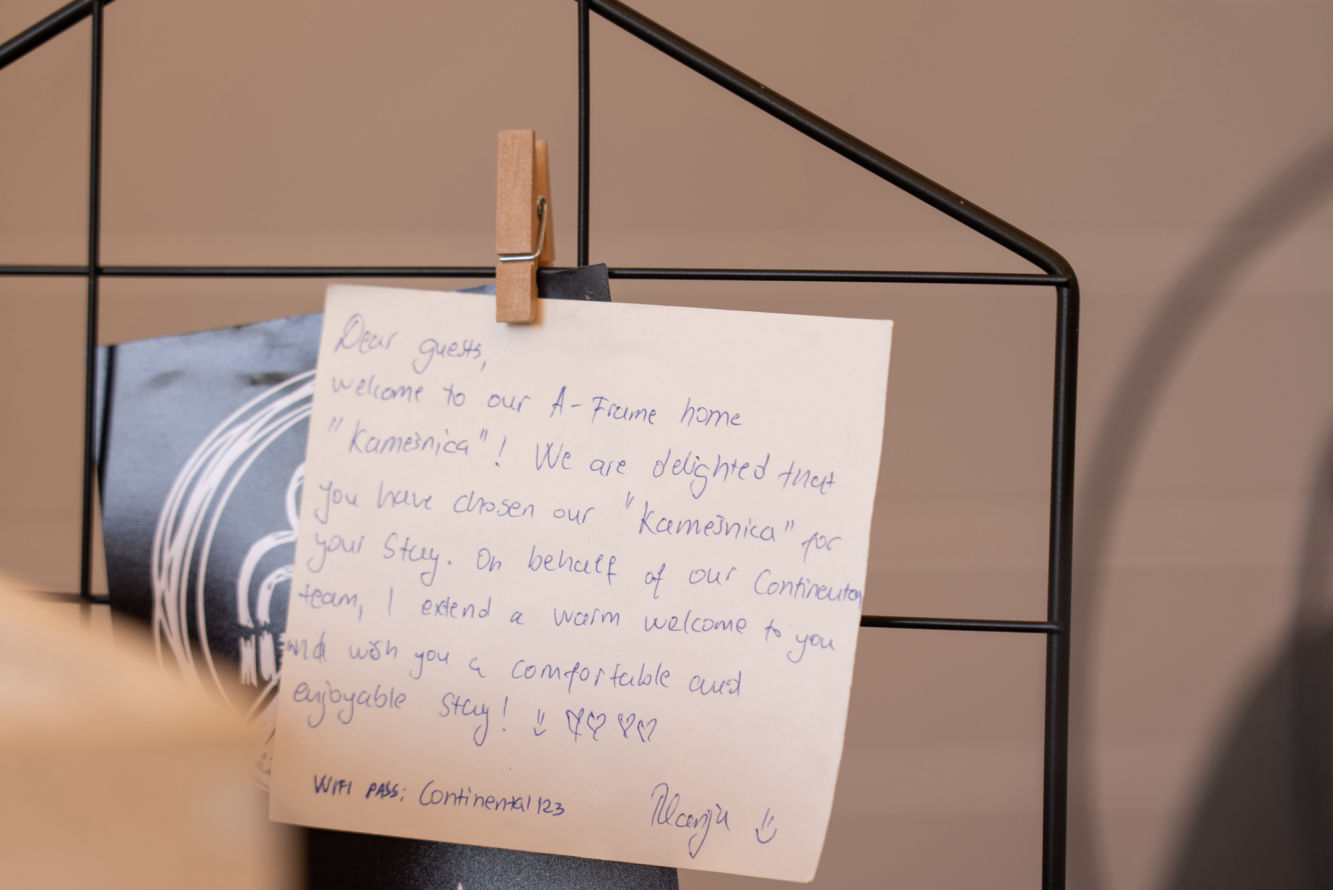 Dear guests,
welcome to our A-Frame home
"Kamešnica"! We are delighted that
you have chosen our "Kamešnica" for
your stay. On behalf of our Continental
team, I extend a warm welcome to you
and wish you a comfortable and
enjoyable stay!
WIFI PASS: Continental123